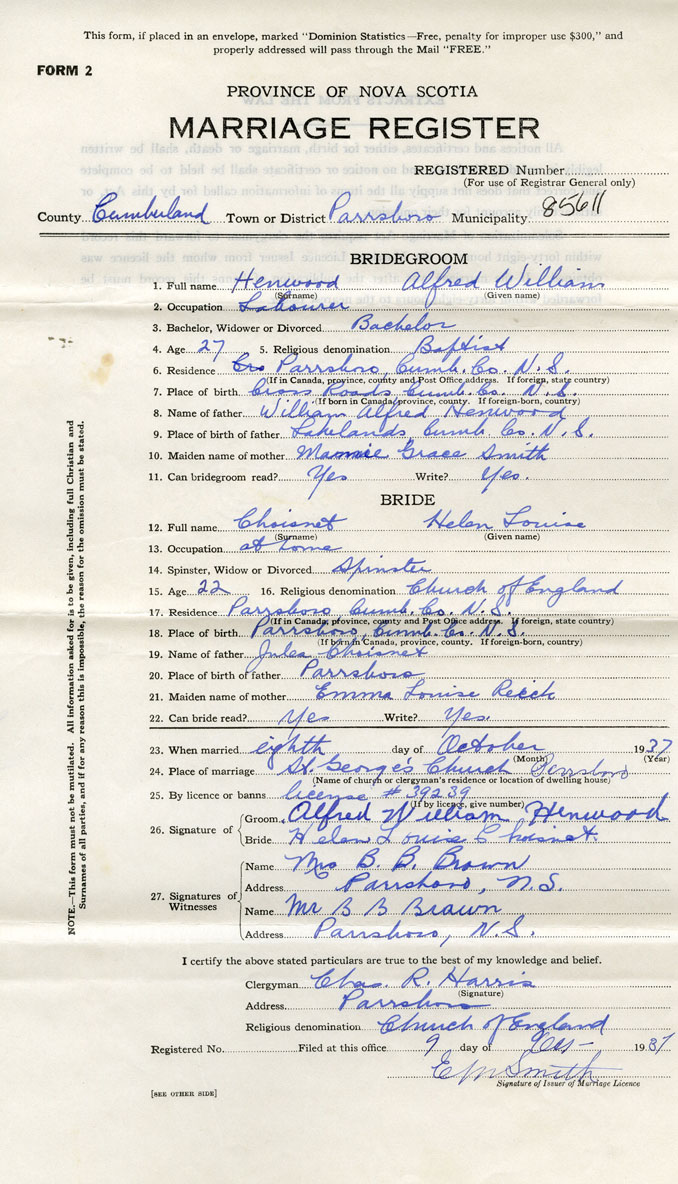 This form, if placed in an envelope, marked "Dominion Statistics—Free, penalty for improper use $300," and
properly addressed will pass through the Mail "FREE."
FORM 2
PROVINCE OF NOVA SCOTIA
MARRIAGE REGISTER
REGISTERED Number
(For use of Registrar General only)
County Cumberland Town or District Parrsboro Municipality 85611
BRIDEGROOM
1. Full name Henwood Alfred William
(Surname) (Given name)
2. Occupation Labourer
3. Bachelor, Widower or Divorced Bachelor
4. Age 27 5. Religious denomination Baptist
6. Residence Parrsboro, Cumb. Co. N.S.
(If in Canada, province, county and Post Office address. If foreign, state country)
7. Place of birth Cross Roads Cumb. Co. N.S.
(If born in Canada, province, county. If foreign-born, country)
8. Name of father William Alfred Henwood
9. Place of birth of father Lakelands, Cumb. Co. N.S.
10. Maiden name of mother Mamie Grace Smith
11. Can bridegroom read? Yes Write? Yes.
BRIDE
12. Full name Choisnet Helen Louise
(Surname) (Given name)
13. Occupation at home
14. Spinster, Widow or Divorced Spinster
15. Age 22 16. Religious denomination Church of England
17. Residence Parrsboro, Cumb. Co. N.S.
(If in Canada, province, county and Post Office address. If foreign, state country)
18. Place of birth Parrsboro, Cumb. Co. N.S.
(If born in Canada, province, county. If foreign-born, country)
19. Name of father Jules Choisnet
20. Place of birth of father Parrsboro
21. Maiden name of mother Emma Louise
22. Can bride read? Yes Write? Yes.
23. When married eighth day of October 1937
(Month) (Year)
24. Place of marriage St. George's Church Parrsboro
(Name of church or clergyman's residence or location of dwelling house)
25. By licence or banns license # 39239
(If by licence, give number)
26. Signature of
Groom Alfred William Henwood
Bride Helen Louise Choisnet.
27. Signatures of Witnesses
Name Mrs B. B. Brown
Address Parrsboro, N.S.
Name Mr B B Brown
Address Parrsboro, N.S.
I certify the above stated particulars are true to the best of my knowledge and belief.
Clergyman Chas. R. Harris
(Signature)
Address Parrsboro
Religious denomination Church of England
Registered No. Filed at this office 9 day of Oct 1937
Smith
Signature of Issuer of Marriage Licence
[SEE OTHER SIDE]
NOTE.—This form must not be mutilated. All information asked for is to be given, including full Christian and
Surnames of all parties, and if for any reason this is impossible, the reason for the omission must be stated.